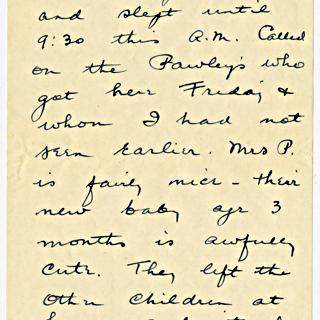 and slept until
9:30 this A.M. Called
on the Pawley's who
got here Friday &
whom I had not
seen earlier. Mrs P.
is fairly nice - their
new baby age 3
months is awfully
cute. They left the
other children at